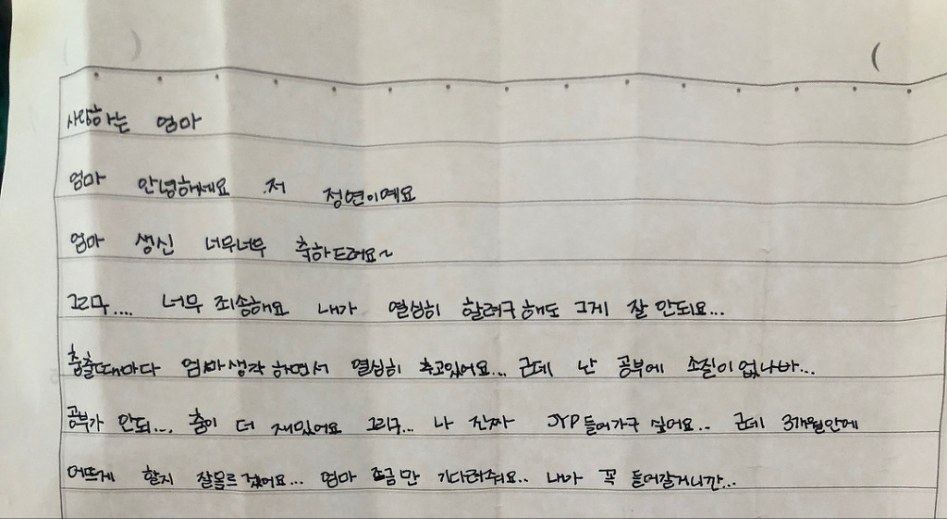 사랑하는 엄마
엄마 안녕하세요 저 정연이예요
엄마 생신 너무너무 축하드려요~
그리구.... 너무 죄송해요 내가 열심히 할려구해도 그게 잘 안되요...
춤출때마다 엄마생각 하면서 열심히 추고있어요... 근데 난 공부에 소질이없나바...
공부가 안되... 춤이 더 재밌어요 그리구... 나 진짜 JYP들어가구 싶어요.. 근데 3개월안에
어뜨게 할지 잘몰르겠어요... 엄마 쪼금만 기다려줘요.. 내가 꼭 들어갈거니깐...